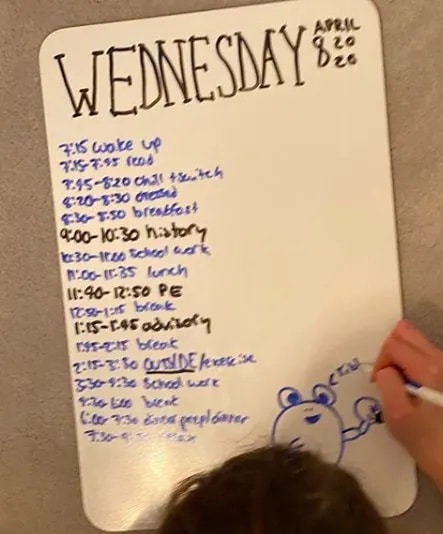 WEDNESDAY APRIL 8 2020
7:15 wake up
7:15-7:45 read
7:45-8:20 chill + switch
8:20-8:30 dressed
8:30-8:50 breakfast
9:00-10:30 history
10:30-11:00 School work
11:00-11:35 lunch
11:40-12:50 PE
12:50-1:15 break
1:15-1:45 advisory
1:45-2:15 break
2:15-3:30 OUTSIDE/exercise
3:30-4:30 School work
4:30-6:00 break
6:00-7:30 dinner prep/dinner